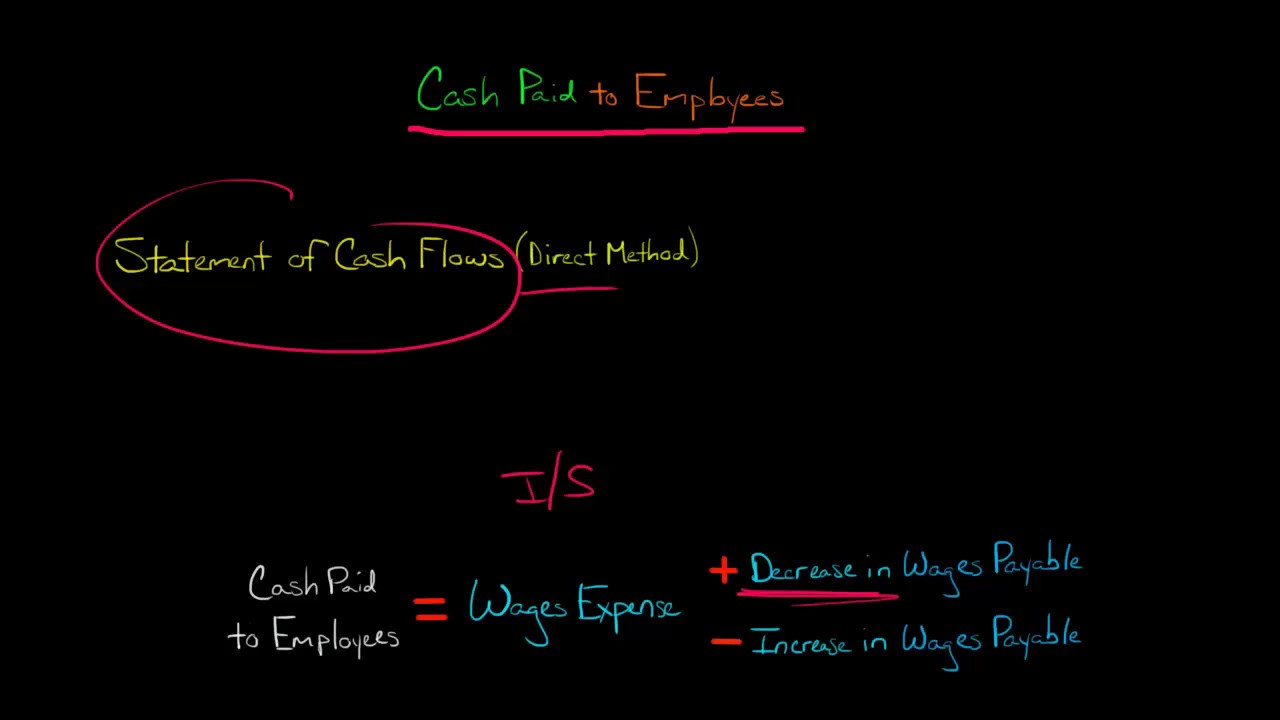 Cash Paid to Employees
Statement of Cash Flows (Direct Method)
I/S
Cash Paid
to Employees
= Wages Expense
+ Decrease in Wages Payable
- Increase in Wages Payable